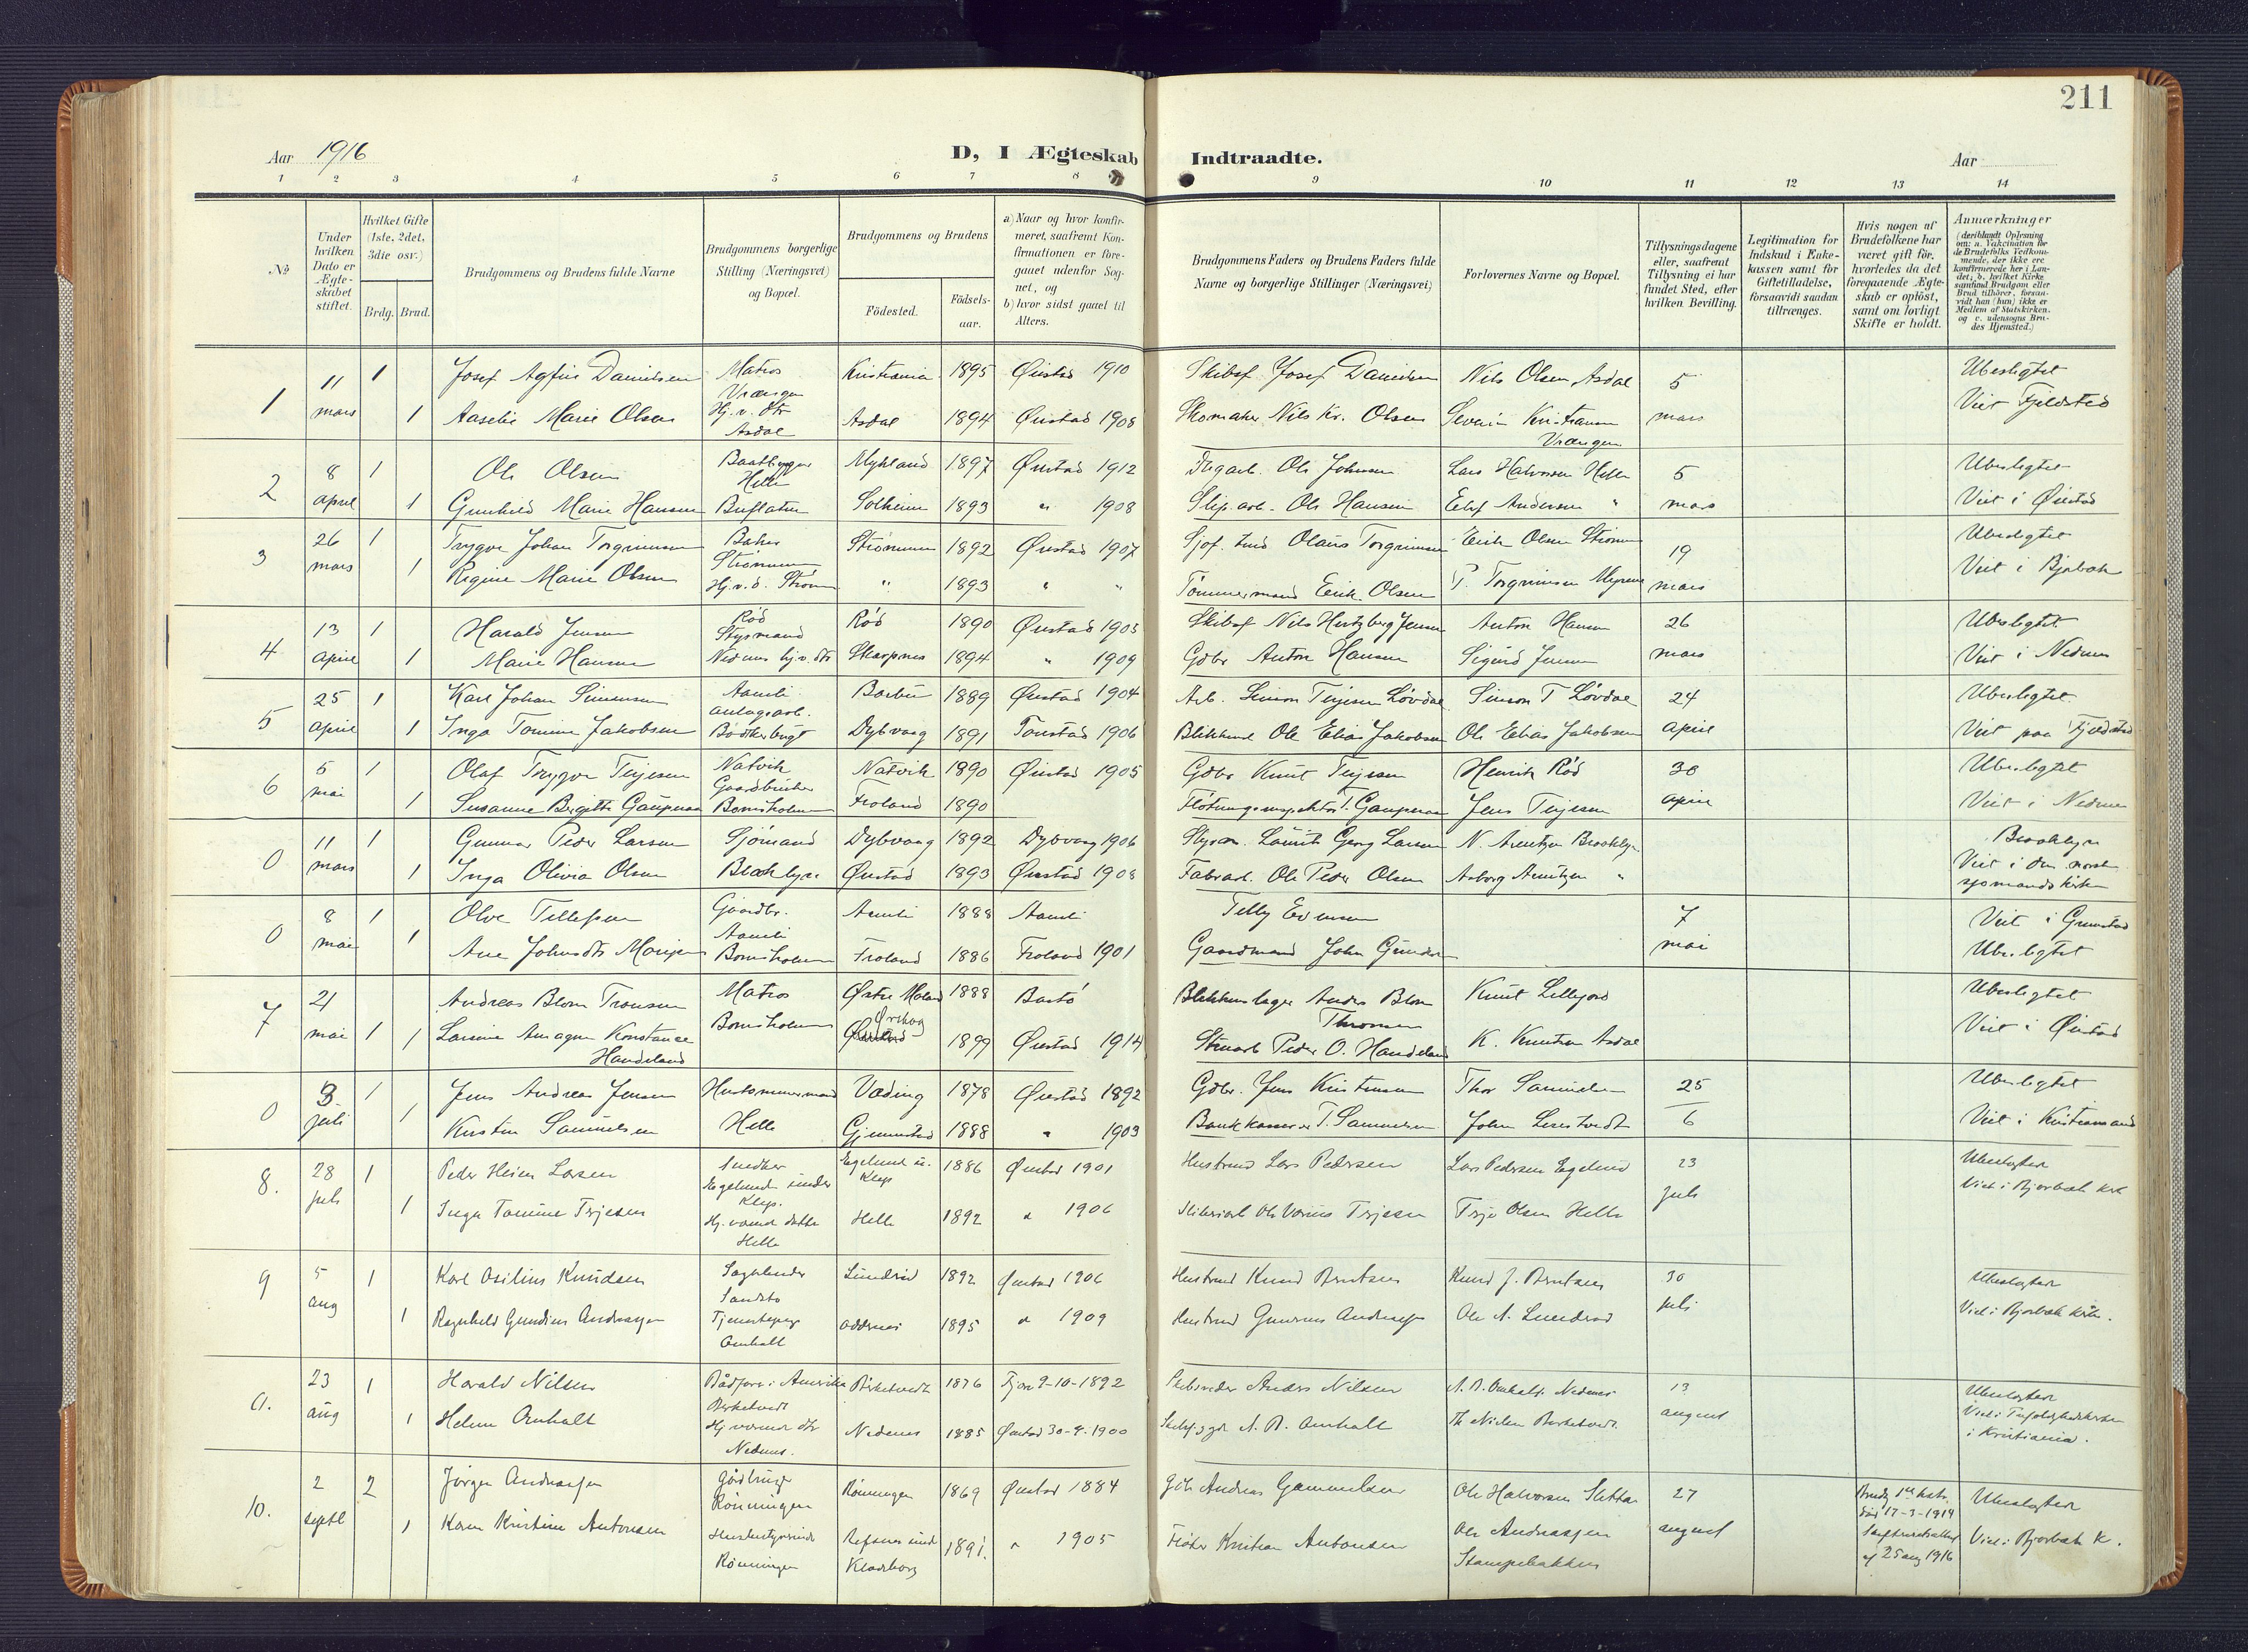 211
Aar 1916
D, I Ægteskab Indtraadte.
Aar
1 2 3 4 5 6 7 8 9 10 11 12 13 14
No
Under hvilken Dato er Ægteskabet stiftet.
Hvilket Gifte (1ste, 2det, 3die osv.)
Brdg. Brud.
Brudgommens og Brudens fulde Navne
Brudgommens borgerlige Stilling (Næringsvei) og Bopæl.
Brudgommens og Brudens
Fødested.
Fødselsaar.
a) Naar og hvor konfirmeret, saafremt Konfirmationen er foregaaet udenfor Sognet, og
b) hvor sidst gaaet til Alters.
Brudgommens Faders og Brudens Faders fulde Navne og borgerlige Stillinger (Næringsvei)
Forlovernes Navne og Bopæl.
Tillysningsdagene eller, saafremt Tillysning ei har fundet Sted, efter hvilken Bevilling.
Legitimation for Indskud i Enkekassen samt for Giftetilladelse, forsaavidt saadan tiltrænges.
Hvis nogen af Brudefolkene har været gift før, hvorledes da det foregaaende Ægteskab er opløst, samt om lovligt Skifte er holdt.
Anmærkninger (deriblandt Oplysning om: a. Vakcination for de Brudefolks Vedkommende, der ikke ere konfirmerede her i Landet; b. hvilket Kirkesamfund Brudgom eller Brud tilhører, forsaavidt han (hun) ikke er Medlem af Statskirken, og c. udensogns Brudes Hjemsted.)
1 11 mars 1 Josef Danielsen Matros Kristiania 1895 Øiestad 1910 Skibsf Josef Danielsen Nils Olsen Asdal 5 mars Ubeslegtet
1 Aaselie Marie Olsen Hj.v. dtr Asdal Asdal 1894 Øiestad 1908 Skomaker Nils Kr. Olsen Severin Kristiansen Vrængen Viet Fjeldsted
2 8 april 1 Ole Olsen Baatbygger Helle Mykland 1897 Øiestad 1912 Ole Johnsen Lars Halvorsen Helle 5 mars Ubeslegtet
1 Gunhild Marie Hansen Buflaten Solheim 1893 " 1908 Slip.arb. Ole Hansen Andersen " Viet i Øiestad
3 26 mars 1 Trygve Johan Torgrimsen Baker Strømmen Strømmen 1892 Øiestad 1907 Olaus Torgrimsen Erik Olsen Strømm 19 mars Ubeslegtet
1 Regine Marie Olsen Hj.v.d. Strøm " 1893 " " Tømmermand Erik Olsen T. Torgrimsen Myrene Viet i Bjorbæk
4 13 april 1 Harald Jensen Rød Styrmand Rød 1890 Øiestad 1905 Skibsf Nils Hertzberg Jensen Anton Hansen 26 mars Ubeslegtet
1 Marie Hansen Nedenes hj.v. dtr Skarpnes 1894 " 1909 Gdbr Anton Hansen Sigurd Jensen Viet i Nedenes
5 25 april 1 Karl Johan Simonsen Aamli anlegsarb. Barbu 1889 Øiestad 1904 Arb. Simon Terjesen Løvdal Simon T Løvdal 24 april Ubeslegtet
1 Inga Tomine Jakobsen Bødkerbugt Dybvaag 1891 Tonstad 1906 Ole Elias Jakobsen Ole Elias Jakobsen Viet paa Fjeldsted
6 5 mai 1 Olaf Trygve Terjesen Natvik Gaardbruker Natvik 1890 Øiestad 1905 Gdbr Knut Terjesen Henrik Rød 30 april Ubeslegtet
1 Susanne Bergitte Gaupmoe Bomsholmen Froland 1890 Fløtningsinspektør T. Gaupmoe Jens Terjesen Viet i Nedenes
0 11 mars 1 Gunnar Peder Larsen Sjømand Dybvaag 1892 Dybvaag 1906 Styrm. Laurits Georg Larsen N. Arentzen Brooklyn Brooklyn
1 Inga Olivia Olsen Brooklyn Øiestad 1893 Øiestad 1908 Fabrarb. Ole Peder Olsen Aaborg Arentzen " Viet i den norske sjomandskirke
0 8 mai 1 Olve Tellefsen Gaardbr. Aamli Aamli 1888 Aamli Evensen 7 mai Viet i Grimstad
1 Ane Johnsdtr Bomsholmen Froland 1886 Froland 1901 Gaardmand John Ubeslegtet
7 21 mai 1 Andreas Blom Tronsen Matros Østre Moland 1888 Bastø Blikkenslager Anders Blom Thronsen Knut Lillejord Ubeslegtet
1 Konstance Handeland Bomsholmen 1899 Øiestad 1914 Peder O. Handeland K. Knutsen Asdal Viet i Øiestad
0 3 juli 1 Jens Andreas Jensen Hustømmermand Væding 1878 Øiestad 1892 Gdbr. Jens Kristensen Thor Samuelsen 25/6 Ubeslegtet
1 Kirsten Samuelsen Helle Gjemmestad 1888 " 1903 Bankkasserer T. Samuelsen John Viet i Kristiansand
8. 28 juli 1 Peder Larsen Snedker Egelund under Klep. Egelund u. Klep 1886 Øiestad 1901 Husmand Lars Pedersen Lars Pedersen Egelund 23 juli Ubeslegtet
1 Inga Tomine Terjesen Hj.værende datter Helle Helle 1892 " 1906 Terjesen Terje Olsen Helle Viet i Bjorbæk kirk
9 5 aug 1 Karl Osilius Knudsen Lunderød 1892 Øiestad 1906 Husmand Knud Berntsen Knud J. Berntsen 30 juli Ubeslegtet
1 Ragnhild Gundine Andreassen Tjenestepige Omholt Oddernes 1895 " 1909 Husmand Andreassen Ole A. Lunderød Viet i Bjorbæk kirke.
0. 23 aug 1 Harald Nilsen Bådfører i Amerika Birketvedt Birketvedt 1876 9-10-1892 Skibsreder Anders Nilsen A. B. Omholt. Nedenes 13 august Ubeslegtet
1 Helene Omholt Hj.værende dtr Nedenes. Nedenes 1885 Øiestad 30-9-1900 A. B. Omholt Th Nilsen Birketvedt. Viet i Trefoldighedskirken i Kristiania.
10. 2 septb 2 Jørgen Andreassen gårdbruger Rønningen Rønningen 1869 Øiestad 1884 Gdb Andreas Gammelsen Ole Halvorsen Sletta 27 august død 17-3-1914 Skifteretsattest af 25 aug 1916 Ubeslegtet
1 Karen Kristine Antonsen Husbestyrerinde Rønningen Refsnes und Kladeborg 1891. " 1905 Fløter Kristian Antonsen Ole Andreassen Stampebakken Viet i Bjorbæk K.